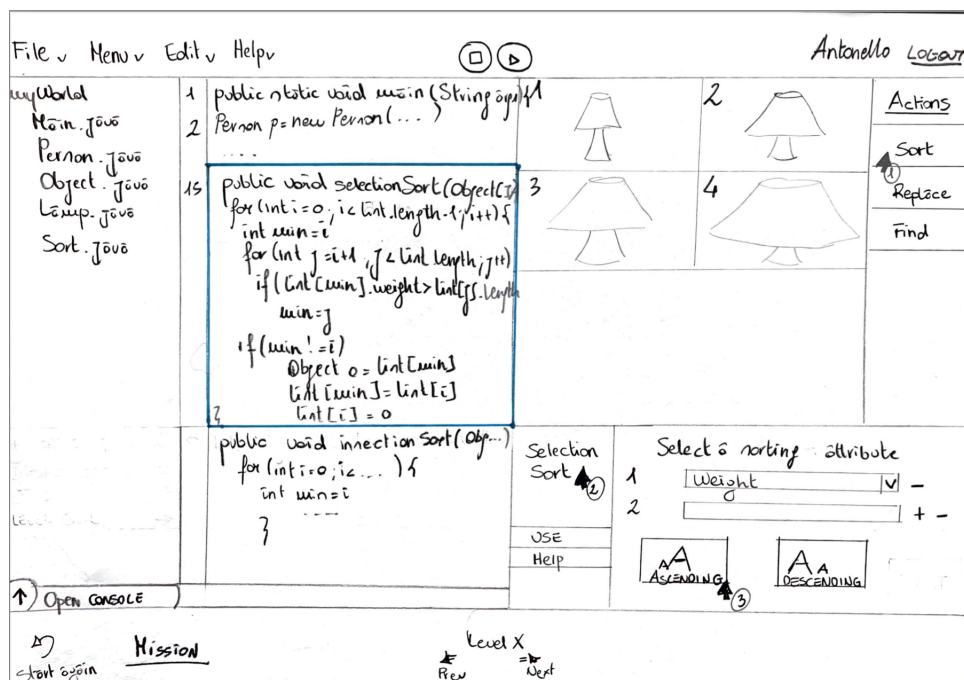 File v Menu v Edit v Help v
Antonello LOGOUT
myWorld
Main.java
Person.java
Object.java
Lamp.java
Sort.java
1 public static void main (String args) {
2 Person p = new Person (...)
....
15 public void selectionSort (Object []
for (int i=0; i< list.length-1; i++) {
int min=i
for (int j=i+1, j< list length; j++)
if (list [min].weight > list[j].length
min=j
if (min != i)
Object o = list [min]
list [min] = list [i]
list [i] = o
}
public void insection Sort (Obj...)
for (int i=0; i< ....) {
int min=i
----
}
1
2
3
4
Actions
Sort
1
Replace
Find
Selection
Sort
2
USE
Help
Select a sorting attribute
1 Weight v -
2 + -
A A
ASCENDING
3
A A
DESCENDING
↑ Open CONSOLE
start again
Mission
Level X
Prev
Next